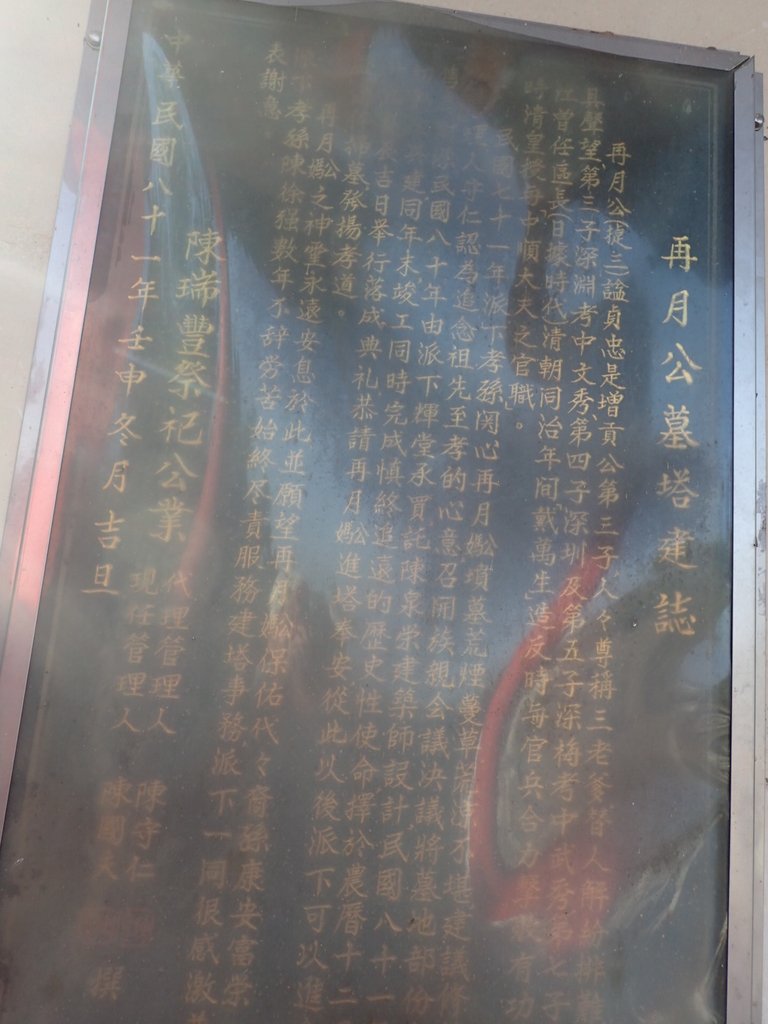 再月公墓塔建誌
再月公(捷三)諡貞忠是增貢公第三子人々尊稱三老爹替人解紛排難
具聲望、第三子深淵考中文秀、第四子深圳及第五子深梅考中武秀第七子
曾任區長(日據時代)清朝同治年間「戴萬生」造反時每官兵合力擊 有功
時清皇授每「中順大夫之官職」。
民國七十一年派下孝孫関心再月媽公墳墓荒煙蔓草 不堪建議修
理人守仁認為追念祖先至孝的心意召開族親会議決議將墓地部份
民國八十年由派下輝堂承買託陳泉崇建築師設計民國八十一
建同年末竣工同時完成慎終追遠的歷史性使命擇於農曆十二
吉日举行落成典礼恭請再月媽公進塔奉安從此以後派下可以進
掃墓發揚孝道。
再月公媽之神靈永遠安息於此並願望再 媽公保佑代々裔孫康安富榮
孝孫陳徐强数年不辞労苦始終尽責服務建塔事務派下一同很感激
表謝意
陳瑞豐祭祀公業 代理管理人 陳守仁
現任管理人 陳 撰
中華民國八十一年壬申冬月吉旦